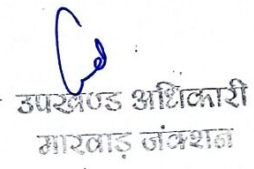 उपखण्ड अधिकारी
मारवाड़ जंक्शन